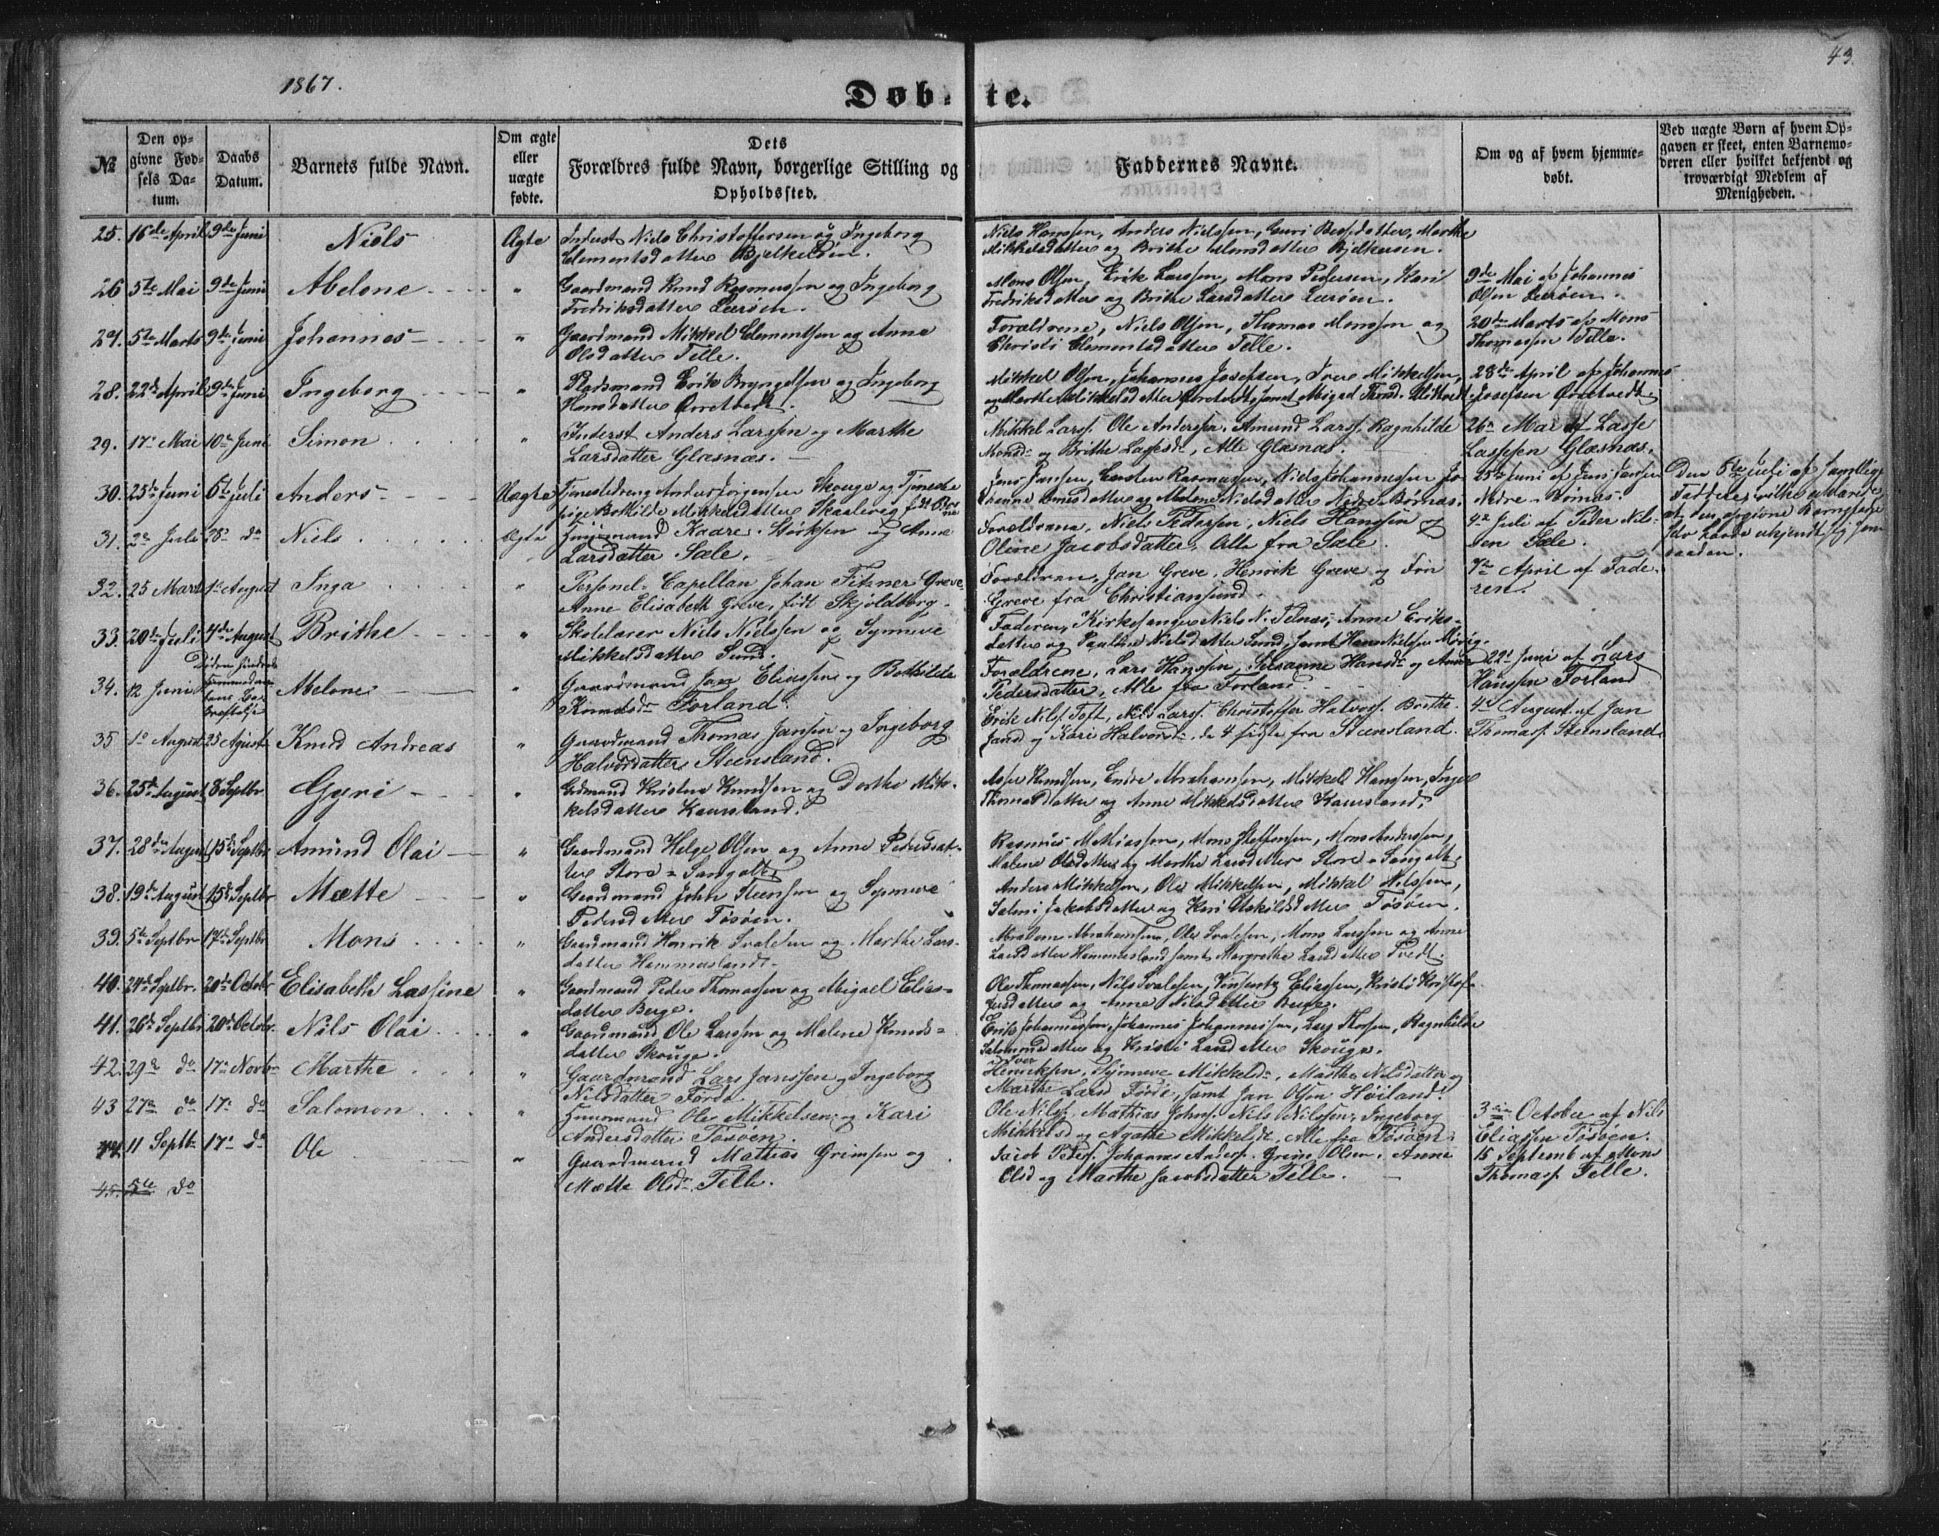 1867.
43.
Döbte.
№
Den opgivne Fødsels Datum.
Daabs Datum.
Barnets fulde Navn.
Om ægte eller uægte fødte.
Dets Forældres fulde Navn, borgerlige Stilling og Opholdssted.
Faddernes Navne.
Om og af hvem hjemmedøbt.
Ved uægte Børn af hvem Opgaven er skeet, enten Barnemoderen eller hvilket bekjendt og troværdigt Medlem af Menigheden.
25. 16de April 9de Juni Niels Ægte Inderst Niels Christoffersen og Ingeborg
Clementsdatter
Niels Hanssen, Anders Nielssen, Guri Marthe
Mikkelsdatter og Brithe
26 5te Mai 9de Juni Abelone " Gaardmand Knud Rasmussen og Ingeborg
Fredriksdatter Lerøen.
Mons Olsen, Erik Larssen, Mons Pedersen, Kari
Fredriksdatter og Brithe Larsdatter Lerøen.
9de Mai af Johannes
Olsen Lerøen.
27. 5te Marts 9de Juni Johannes " Gaardmand Mikkel Clementsen og Anne
Olsdatter Telle.
Forældrene, Niels Olsen, Thomas Monssen og
Christi Clementsdatter Telle.
20de Marts af Mons
Thomassen Telle.
28. 22de April 9de Juni Ingeborg " Pladsmand Erik Bryngelsen og Ingeborg
Hansdatter
Mikkel Olsen, Johannes Josefsen, Iver Mikkelsen,
og Marthe Mikkelsdatter samt
28de April af Johannes
Josefsen
29. 17 Mai 10de Juni Simon " Inderst Anders Larssen og Marthe
Larsdatter Glæsnæs.
Mikkel Larss. Ole Anderssen. Amund Larss. Ragnhilde
Monsd og Brithe Alle Glæsnæs.
26 Mai af Lasse
Lassesen Glæsnæs.
30. 25de Juni 6te Juli Anders Uægte Tjenestedreng Anders Jørgensen Skouge og Tjeneste
pige Bothilde Mikkelsdatter Skaalevig
Jens Jansen, Carsten Rasmussen, Niels Johannessen
og Malene Nielsdatter Nedre-Børnæs.
25de Juni af Jens Jansen
Nedre-Børnæs.
Den 6te Juli af samtlige
31. 2 Juli 28 do Niels Ægte Kaare Størksen og Anne
Larsdatter Sæle.
Forældrene, Niels Pedersen, Niels Hanssen og
Oline Jacobsdatter, Alle fra Sæle.
4 Juli af Peder Nil-
sen Sæle.
32. 25 Marts 1 August Inga " Personel Capellan Johan Fitzner Greve
Anne Elisabeth Greve, født Skjoldborg.
Forældrene, Jan Greve, Henrik Greve og
Greve fra Christiansund.
7de April af Fade-
ren.
33. 20de Juli 4de August Brithe " Skolelærer Niels Nielssen og Synneve
Mikkelsdatter Sund.
Faderen, Kirkesanger Niels N. Telnæs, Anne Eriks-
datter og Pauline Nielsdatter Sund, samt Hans Nielssen
34. 12 Juni Abelone " Gaardmand Lars Eliassen og Bothilde
Forland.
Forældrene, Lars Hanssen, Susanne Hansd og Anne
Pedersdatter, Alle fra Forland.
22 Juni af Lars
Hanssen Forland
35 1 August 25 August Knud Andreas " Gaardmand Thomas Jansen og Ingeborg
Halvorsdatter Steensland.
Erik Nilss. Toft, Nils Larss. Christoffer Halvors. Brithe
Jansd og Kari Halvorsd. de 4 sidste fra Steensland.
4de August af Jan
Thomass. Steensland.
36. 25de August 8 Septbr. Gyri " Grdmand Kristen Knudsen og Dorthe Mik-
kelsdatter Kausland.
Knudsen, Endre Abrahamsen, Mikkel Hanssen, Inger
Thomasdatter og Anne Mikkelsdatter Kausland.
37. 28de August 15de Septbr Amund Olai " Gaardmand Helge Olsen og Anne Pedersdat-
ter Store-Sangolt
Rasmus Mathiassen, Mons Steffensen, Mons Anderssen,
Malene Olsdatter og Marthe Larsdatter Store-Sangolt.
38. 19de August 15de Septbr. Mætte " Gaardmand John Steensen og Synneve
Pedersdatter Tøsøen.
Anders Mikkelsen, Ole Mikkelsen, Mikkel Nilssen,
Salmi Jakobsdatter og Kari Tøsøen.
39. 5te Septbr 17de Septbr Mons " Gaardmand Henrik Ivarsen og Marthe Lars-
datter Hammersland.
Abraham Abrahamsen, Ole Ivarsen, Mons Larssen og Anne
Larsdatter Hammersland samt Margrethe Larsdatter Tvedt.
40. 24de Septbr. 20de Octobr Elisabeth Lassine " Gaardmand Peder Thomassen og Abigael Elias-
datter Berge.
Ole Thomassen, Nils Ivarsen, Eliassen, Kristi Kristof-
fersdatter og Anne Nilsdatter Berge.
41. 26de Septbr 20de Octobr Nils Olai " Gaardmand Ole Larssen og Malene Knuds-
datter Skouge.
Erik Johannessen, Johannes Johannessen, Lars Thorsen, Ragnhilde
Salomonsdatter og Kristi Larsdatter Skouge.
42. 29de do 17de Novb Marthe " Gaardmand Lars Janssen og Ingeborg
Nilsdatter Førde
Iver
Henriksen, Synneve Mikkelsd, Marthe Nilsdatter og
Marthe Larsd Førde, samt Jan Olsen Høiland.
43 27de do 17 do Salomon " Huusmand Ole Mikkelsen og Kari
Andersdatter Tøsøen.
Ole Nilss. Mathias Johns. Nils Nilssen, Ingeborg
Mikkelsd og Agathe Mikkelsd, Alle fra Tøsøen.
3die October af Nils
Eliassen Tøsøen.
44. 11 Septb 17 do Ole " Gaardmand Mathias Grimsen og
Mætte Olsd. Telle.
Jacob Peders. Johannes Anders. Grim Olsen. Anne
Olsd og Marthe Jacobsdatter Telle.
15 Septemb af Mons
Thomass. Telle.
45. 5te do